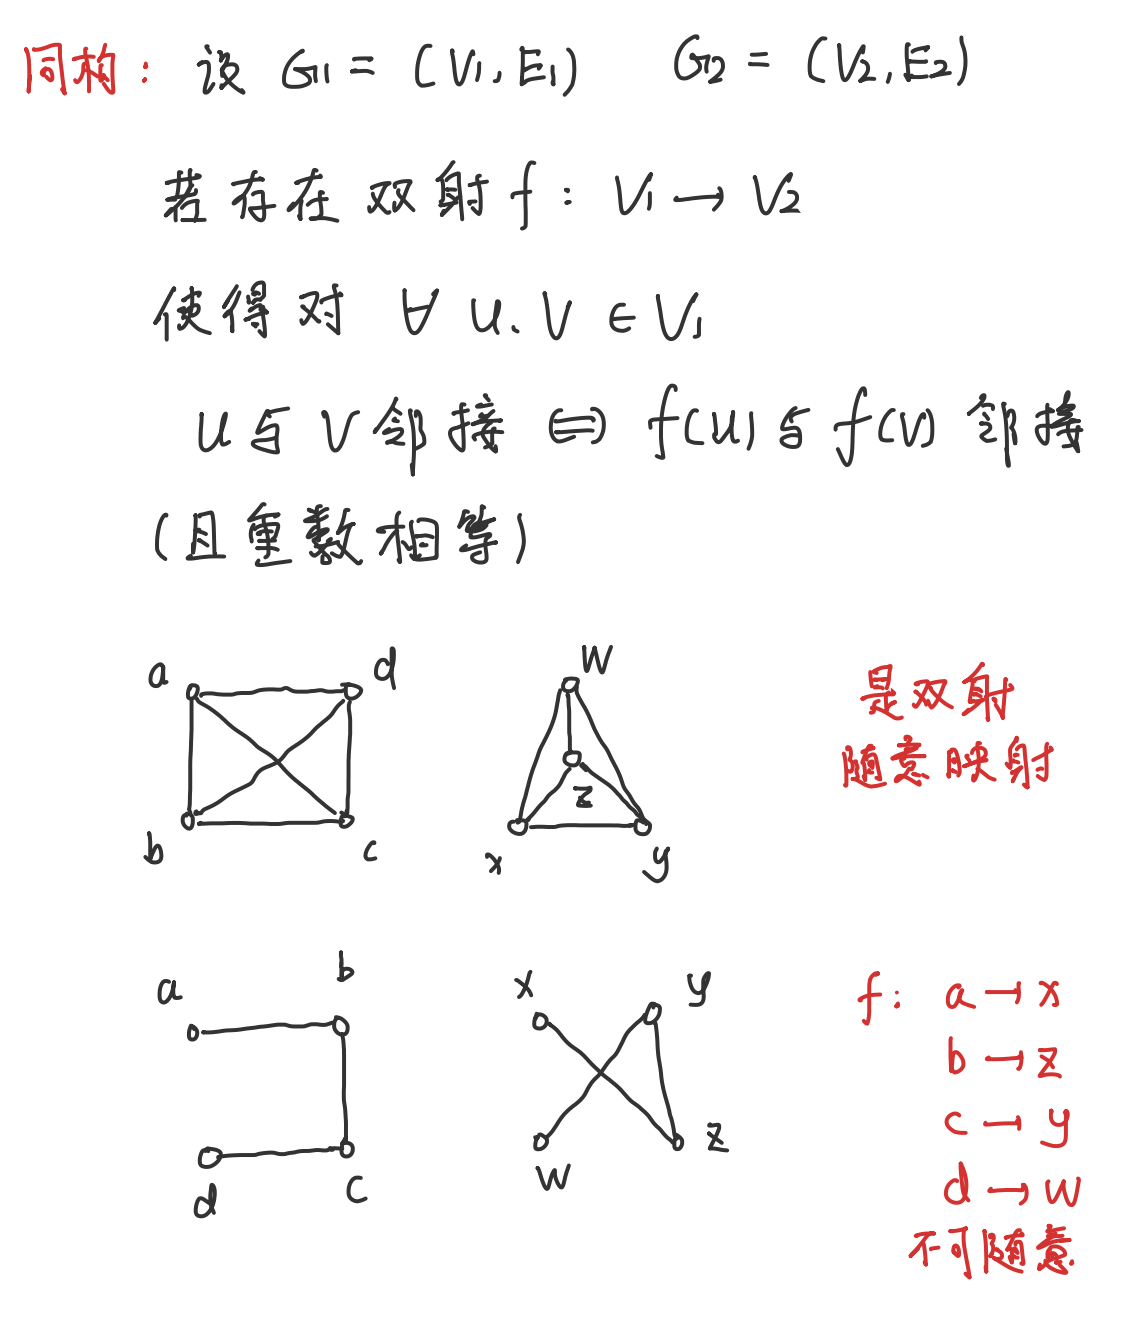 同构: 设 G1 = (V1, E1) G2 = (V2, E2)
若存在双射 f: V1 → V2
使得对 ∀ u、v ∈ V1
u 与 v 邻接 ⇔ f(u) 与 f(v) 邻接
(且重数相等)
a d w
z
b c x y
是双射
随意映射
a b x y
d c w z
f: a → x
b → z
c → y
d → w
不可随意